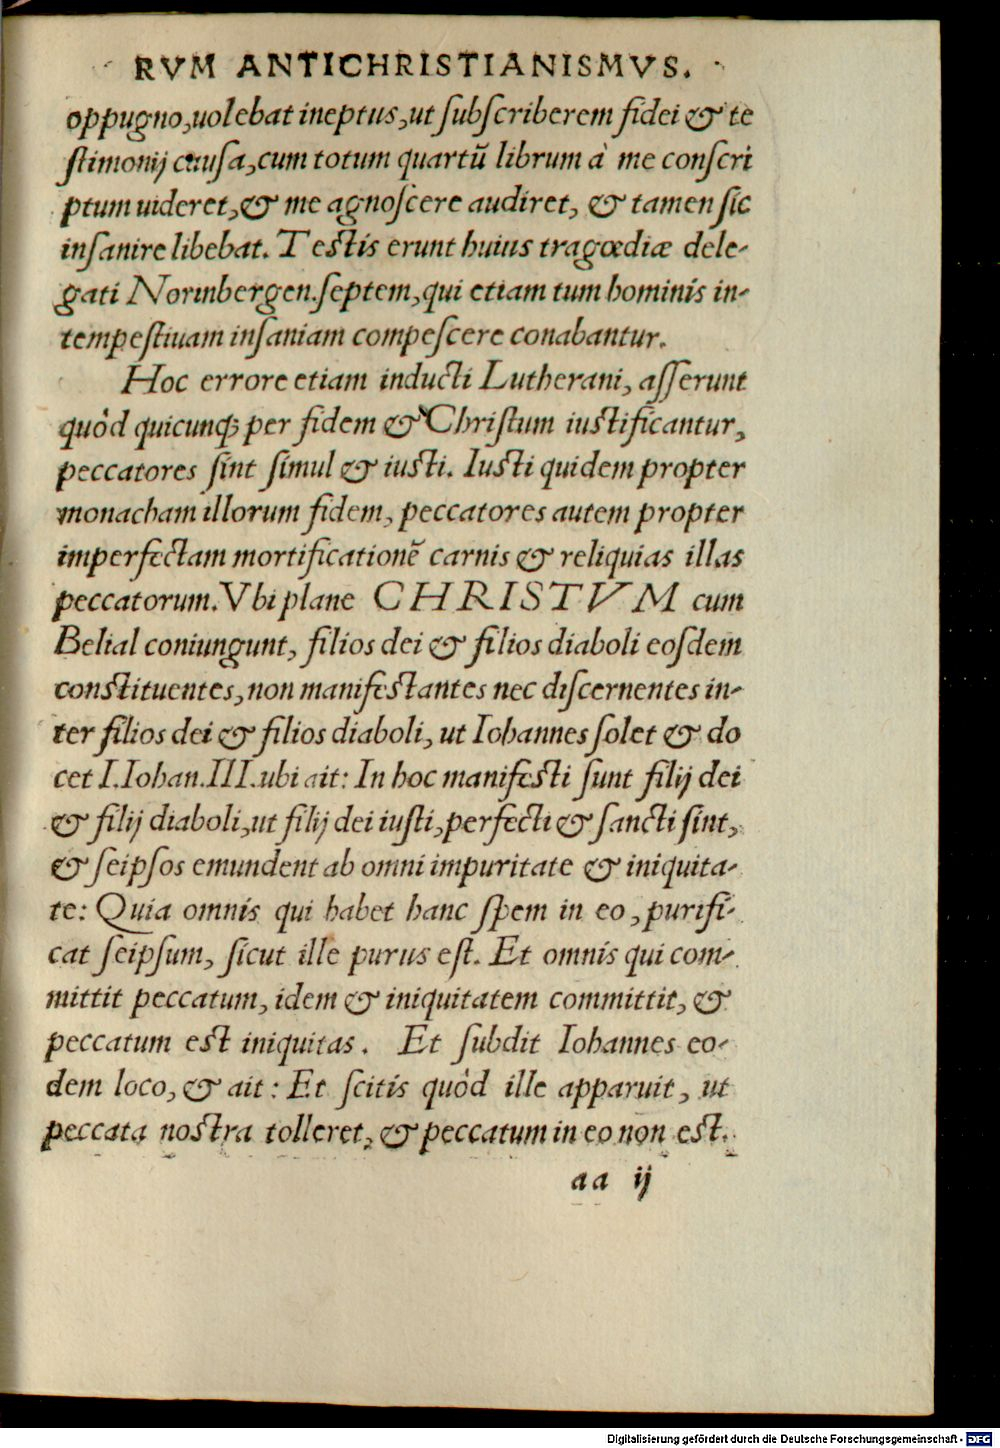 RVM ANTICHRISTIANISMVS.
oppugno,uolebat ineptus,ut ſubſcriberem fidei & te
ſtimonij cauſa,cum totum quartũ librum à me conſcri
ptum uideret,& me agnoſcere audiret, & tamen ſic
inſanire libebat. Teſtis erunt huius tragœdiæ dele-
gati Normbergen.ſeptem,qui etiam tum hominis in-
tempeſtiuam inſaniam compeſcere conabantur.
Hoc errore etiam inducti Lutherani, aſſerunt
quòd quicunq; per fidem & Chriſtum iuſtificantur,
peccatores ſint ſimul & iuſti. Iuſti quidem propter
monacham illorum fidem, peccatores autem propter
imperfectam mortificationẽ carnis & reliquias illas
peccatorum.Vbi plane CHRISTVM cum
Belial coniungunt, filios dei & filios diaboli eoſdem
conſtituentes,non manifeſtantes nec diſcernentes in-
ter filios dei & filios diaboli, ut Iohannes ſolet & do
cet I.Iohan.III.ubi ait: In hoc manifeſti ſunt filij dei
& filij diaboli,ut filij dei iuſti,perfecti & ſancti ſint,
& ſeipſos emundent ab omni impuritate & iniquita-
te: Quia omnis qui habet hanc ſpem in eo, purifi-
cat ſeipſum, ſicut ille purus eſt. Et omnis qui com-
mittit peccatum, idem & iniquitatem committit, &
peccatum eſt iniquitas. Et ſubdit Iohannes eo-
dem loco, & ait: Et ſcitis quòd ille apparuit, ut
peccata noſtra tolleret, & peccatum in eo non eſt.
aa ij
Digitalisierung gefördert durch die Deutsche Forschungsgemeinschaft - DFG